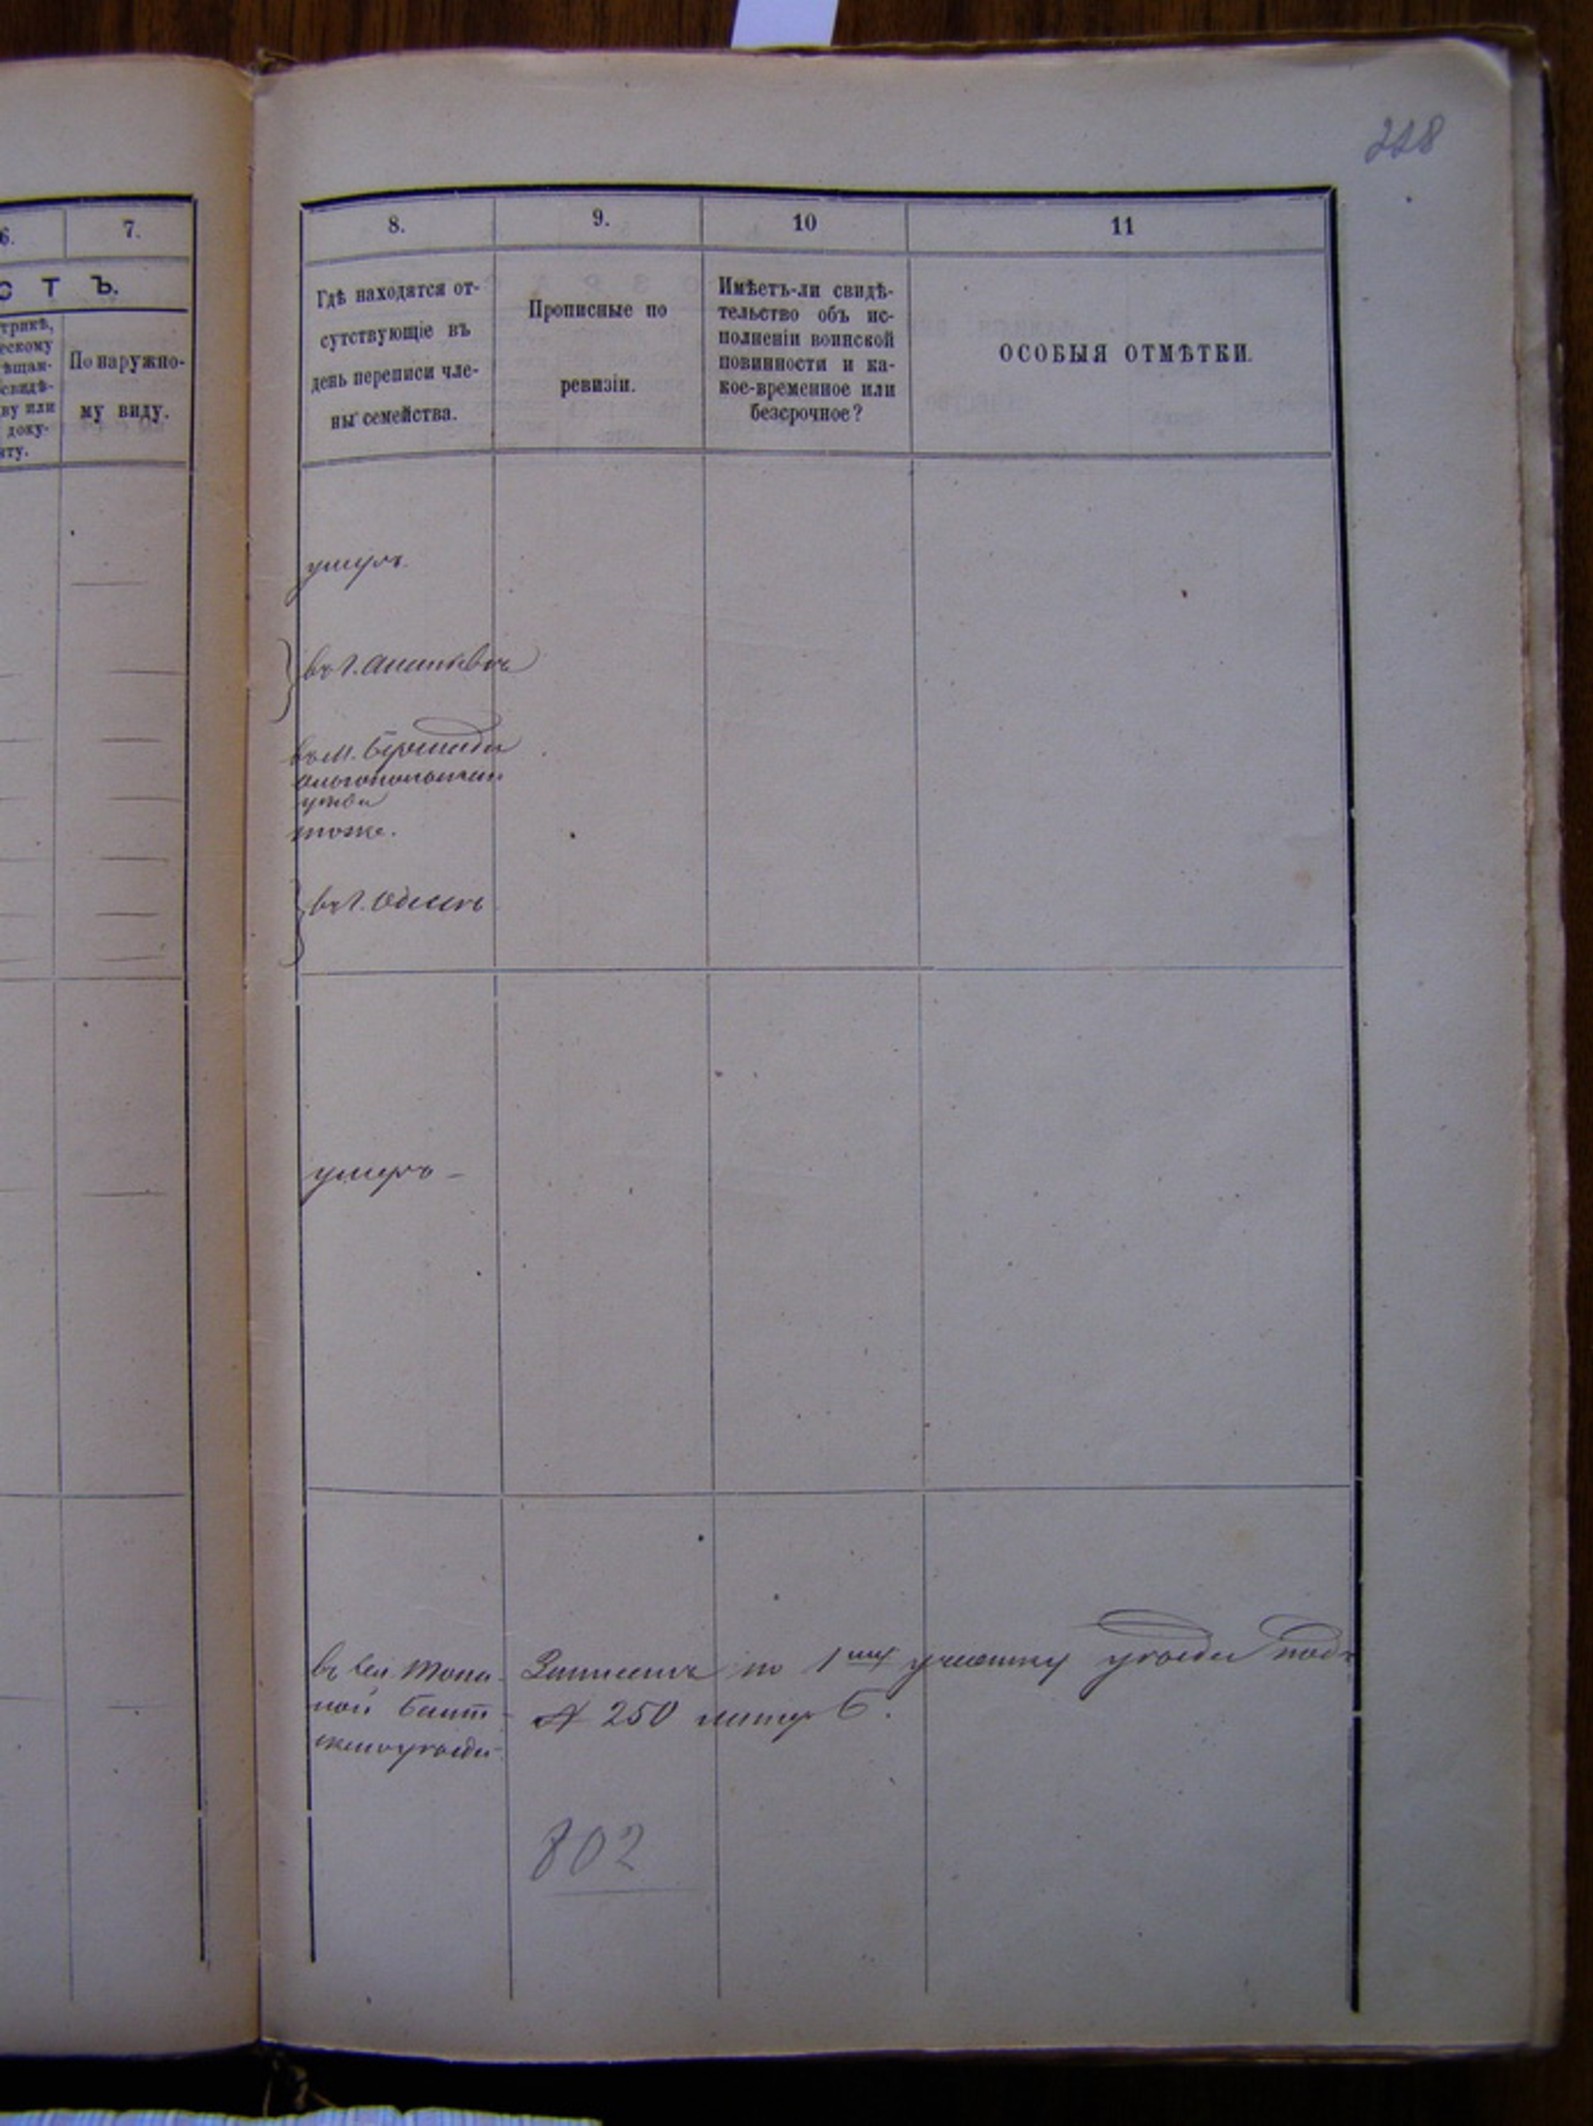 228
6.
7.
С Т Ъ.
трикѣ,
ескому
ѣщан-
свидѣ-
ву или
доку-
нту.
По наружно-
му виду.
8.
9.
10
11
Гдѣ находятся от-
сутствующіе въ
день переписи чле-
ны семейства.
Прописные по
ревизіи.
Имѣетъ-ли свидѣ-
тельство объ ис-
полненіи воинской
повинности и ка-
кое-временное или
безсрочное?
ОСОБЫЯ ОТМѢТКИ.
умеръ.
въ г. Ананьевѣ
въ м. Бершади
Ольгопольскаго
уѣзда
тоже.
въ г. Одессѣ
умеръ –
въ сел.
Записанъ по 1му участку уѣзда подъ
№ 250 литер Б.
802